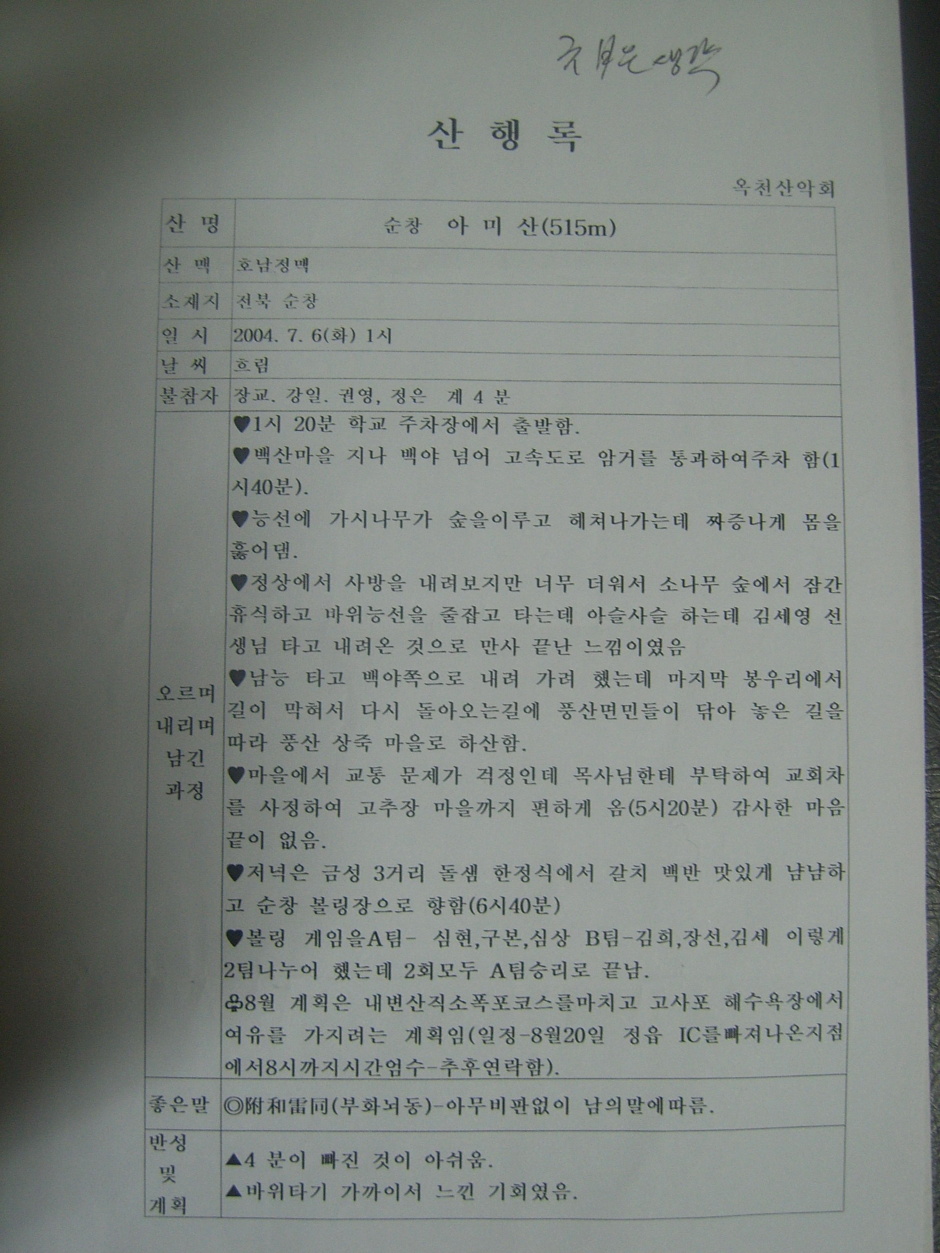 은 생각
산 행 록
옥천산악회
산 명 순창 아 미 산(515m)
산 맥 호남정맥
소재지 전북 순창
일 시 2004. 7. 6(화) 1시
날 씨 흐림
불참자 장교. 강일. 권영, 정은 계 4 분
♥1시 20분 학교 주차장에서 출발함.
♥백산마을 지나 백야 넘어 고속도로 암거를 통과하여주차 함(1
시40분).
♥능선에 가시나무가 숲을이루고 헤쳐나가는데 짜증나게 몸을
훑어댐.
♥정상에서 사방을 내려보지만 너무 더워서 소나무 숲에서 잠간
휴식하고 바위능선을 줄잡고 타는데 아슬사슬 하는데 김세영 선
생님 타고 내려온 것으로 만사 끝난 느낌이였음
♥남능 타고 백야쪽으로 내려 가려 했는데 마지막 봉우리에서
오르며 길이 막혀서 다시 돌아오는길에 풍산면민들이 닦아 놓은 길을
내리며 따라 풍산 상죽 마을로 하산함.
남긴
과정 ♥마을에서 교통 문제가 걱정인데 목사님한테 부탁하여 교회차
를 사정하여 고추장 마을까지 편하게 옴(5시20분) 감사한 마음
끝이 없음.
♥저녁은 금성 3거리 돌샘 한정식에서 갈치 백반 맛있게 냠냠하
고 순창 볼링장으로 향함(6시40분)
♥볼링 게임을A팀- 심현,구본,심상 B팀-김희,장선,김세 이렇게
2팀나누어 했는데 2회모두 A팀승리로 끝남.
♧8월 계획은 내변산직소폭포코스를마치고 고사포 해수욕장에서
여유를 가지려는 계획임(일정-8월20일 정읍 IC를빠져나온지점
에서8시까지시간엄수-추후연락함).
좋은말 ◎附和雷同(부화뇌동)-아무비판없이 남의말에따름.
반성
및
계획
▲4 분이 빠진 것이 아쉬움.
▲바위타기 가까이서 느낀 기회였음.